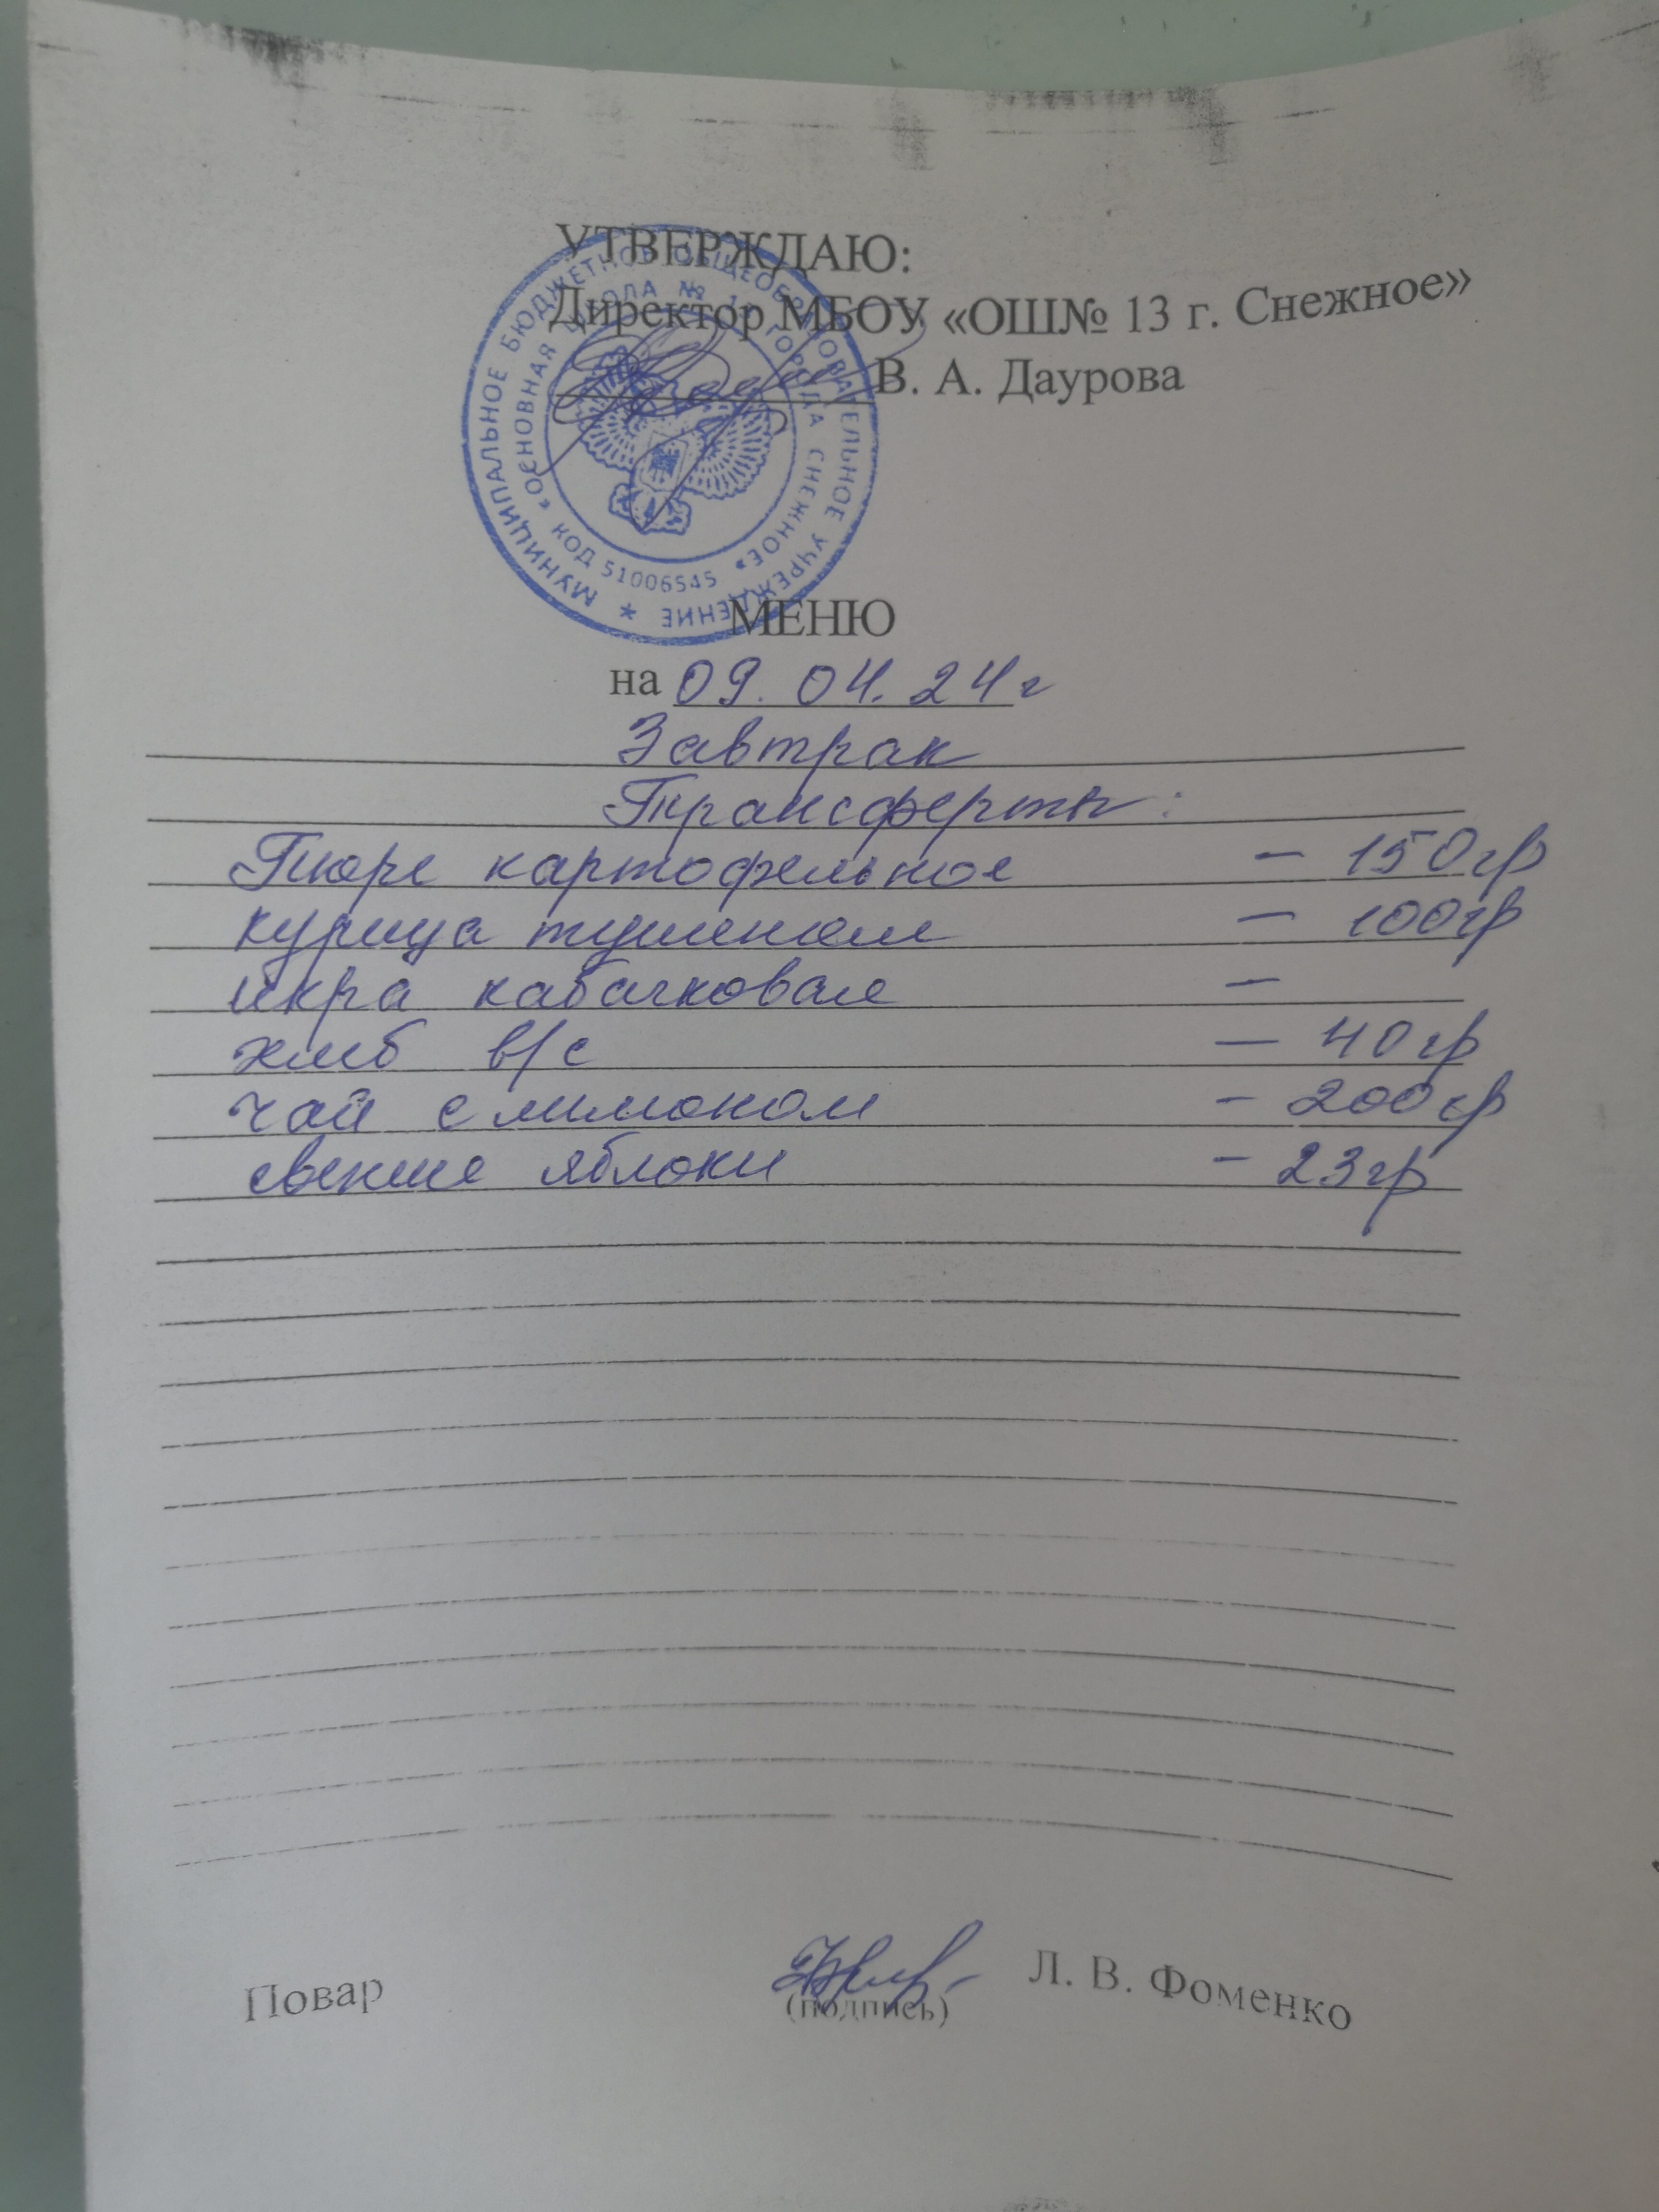 УТВЕРЖДАЮ:
Директор МБОУ «ОШ№ 13 г. Снежное»
В. А. Даурова
МУНИЦИПАЛЬНОЕ БЮДЖЕТНОЕ ОБЩЕОБРАЗОВАТЕЛЬНОЕ УЧРЕЖДЕНИЕ *
«ОСНОВНАЯ ШКОЛА № 13 ГОРОДА СНЕЖНОЕ»
КОД 51006545
МЕНЮ
на 09.04.24г
Завтрак
Трансферты:
Пюре картофельное — 150гр
курица тушеная — 100гр
икра кабачковая —
хлеб в/с — 40гр
чай с лимоном — 200гр
свежие яблоки — 23гр
Повар
(подпись)
Л. В. Фоменко